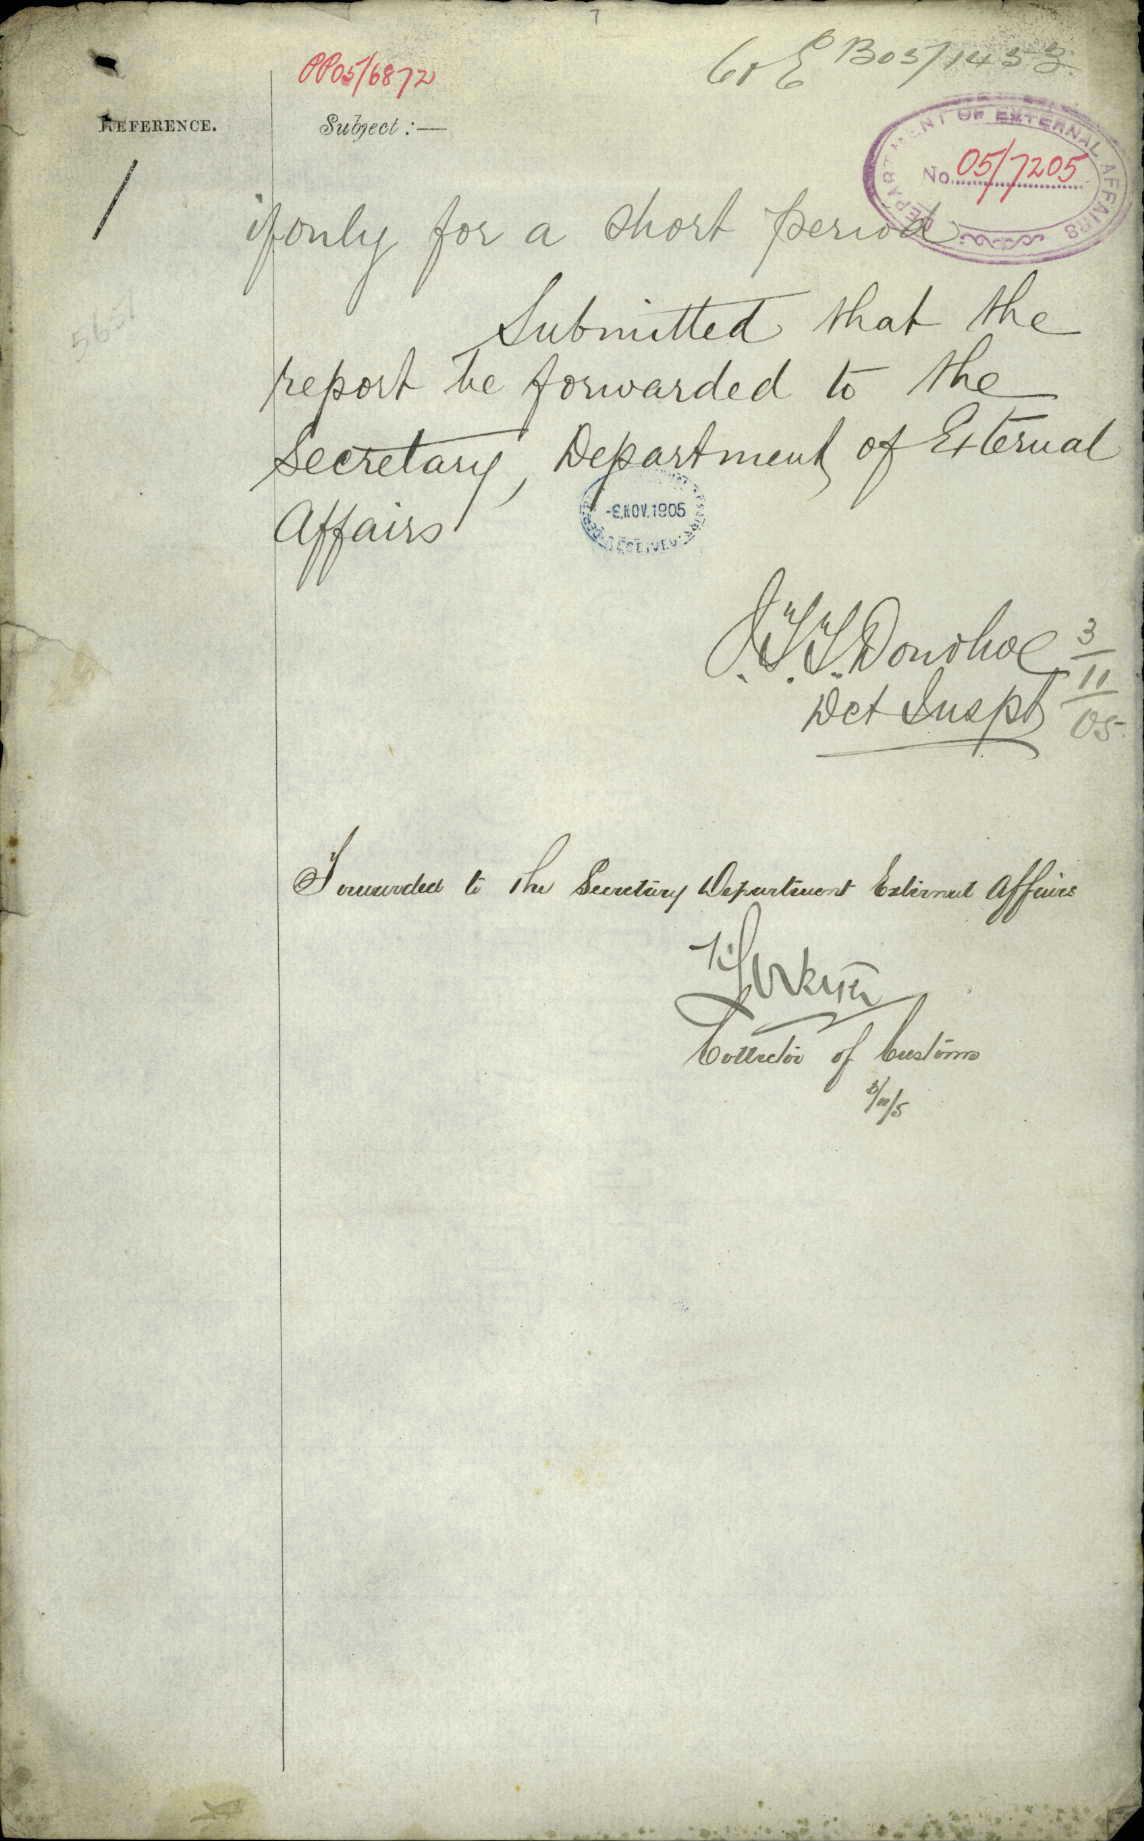 7
PP05/6872
C & E B05/1453
REFERENCE.
Subject:—
DEPARTMENT OF EXTERNAL AFFAIRS
No. 05/7205
if only for a short period
Submitted that the
report be forwarded to the
Secretary, Department of External
Affairs
NOV. 1905
RECEIVED
Donohoe 3/11/05
Det Inspt
Forwarded to the Secretary Department External Affairs
Collector of Customs